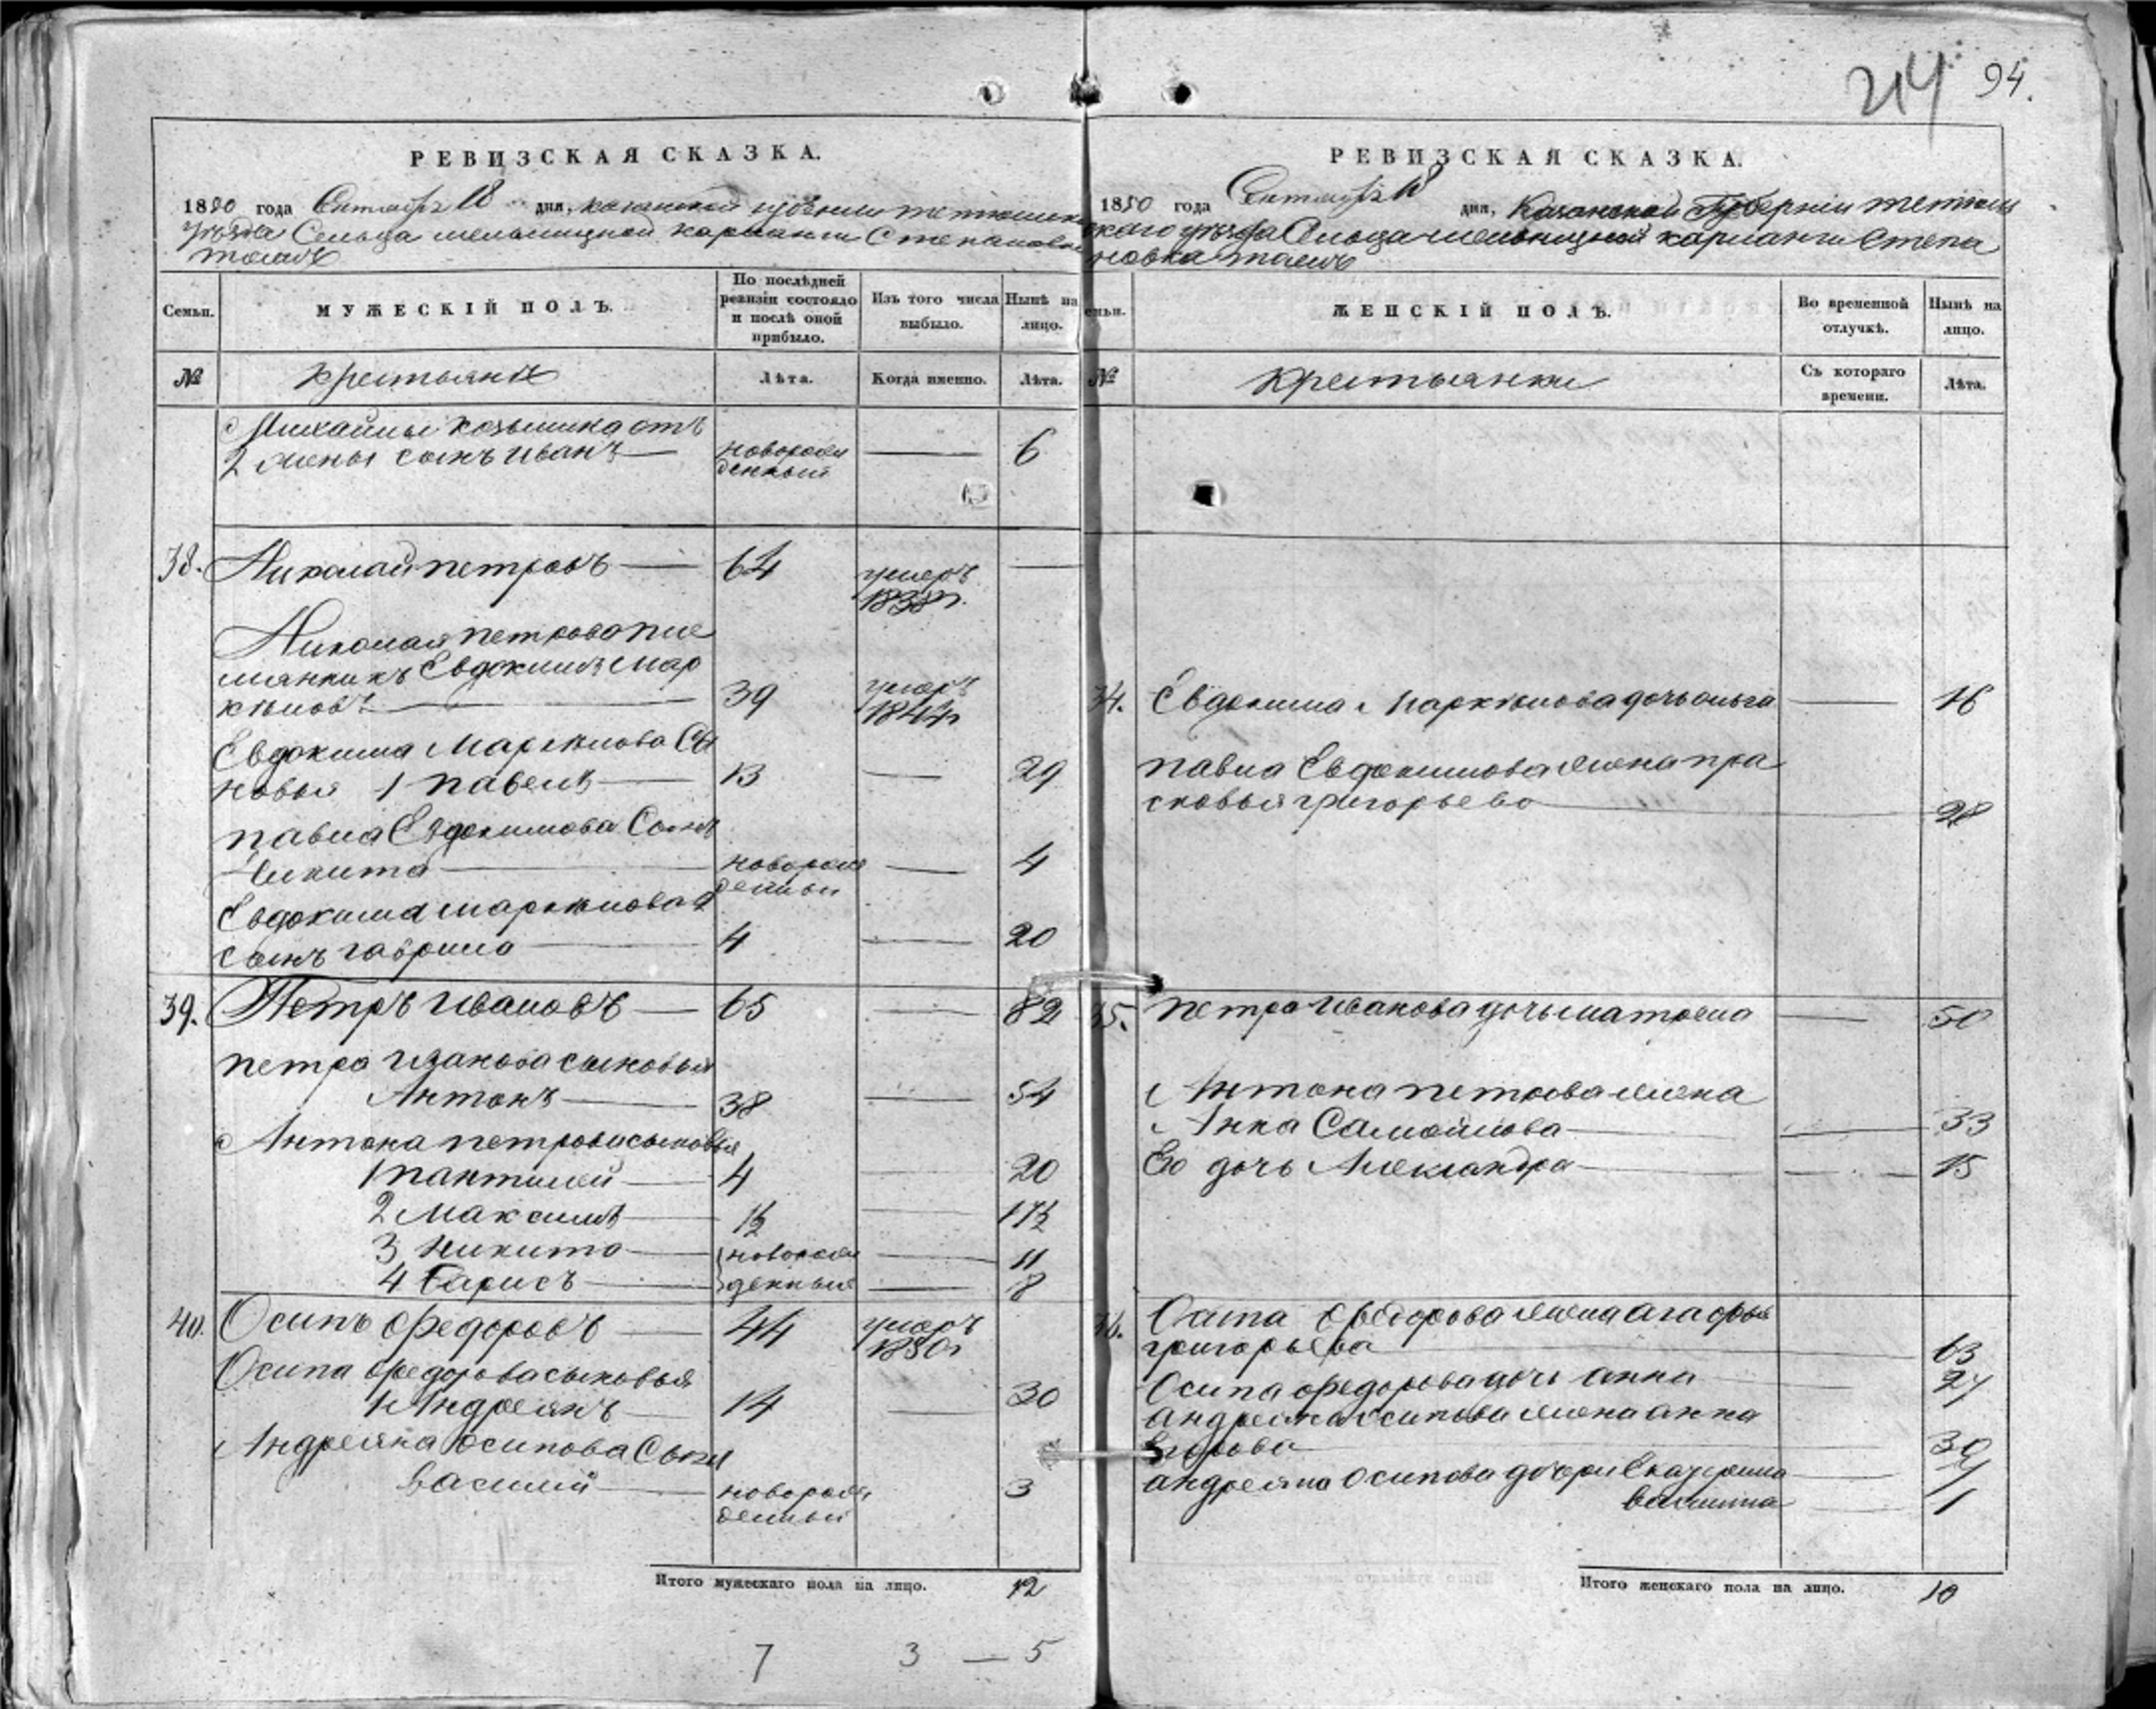 214 94.
РЕВИЗСКАЯ СКАЗКА.
1850 года Сентября 18 дня, казанской губернии тетюшска
уезда Сельца мельницной кармалки Степановка
тожъ
Семьи.
МУЖЕСКІЙ ПОЛЪ.
По послѣдней
ревизіи состояло
и послѣ оной
прибыло.
Изъ того числа
выбыло.
Нынѣ на
лицо.
№
крестьяне
Лѣта.
Когда именно.
Лѣта.
Михайлы козьмина отъ
2 жены сынъ иванъ новорож 6
денный
38. Николай петровъ 64 умеръ
1838г.
Николая петрова пле
мянникъ Евдокимъ Мар
кѣловъ 39 умеръ
1844г
Евдокима Маркѣлова Сы
новья 1 павелъ 13 29
павла Евдокимова Сынъ
Никита новорож 4
денный
Евдокима маркѣлова 2
сынъ гаврило 4 20
39. Петръ ивановъ 65 82
петра иванова сыновья
Антонъ 38 54
Антона петрова сыновья
1 пантилей 4 20
2 Максимъ 1½ 17½
3 Никита новорож 11
4 Барисъ денные 8
40. Осипъ федоровъ 44 умеръ
1850г
Осипа федорова сыновья
1 Андреянъ 14 30
Андреяна осипова Сынъ
василий новорож 3
денный
Итого мужескаго пола на лицо. 12
7 3 — 5
РЕВИЗСКАЯ СКАЗКА.
1850 года Сентября 18 дня, Казанской Губерніи тетюш
скаго уезда Сельца мельницной кармалки Степа
новка тожъ
ЖЕНСКІЙ ПОЛЪ.
Во временной
отлучкѣ.
Нынѣ на
лицо.
№
крестьянки
Съ котораго
времени.
Лѣта.
34. Евдокима Маркѣлова дочь ольга 16
павла Евдокимова жена пра
сковья григорьева 28
35. петра иванова дочь матрена 50
Антона петрова жена
Анна Самойлова 33
Ево дочь Александра 15
36. Осипа Федорова жена агафья
григорьева 63
Осипа федорова дочь анна 27
андреяна осипова жена анна
Егорова 30
андреяна осипова дочери Екатерина
1
Итого женскаго пола на лицо. 10